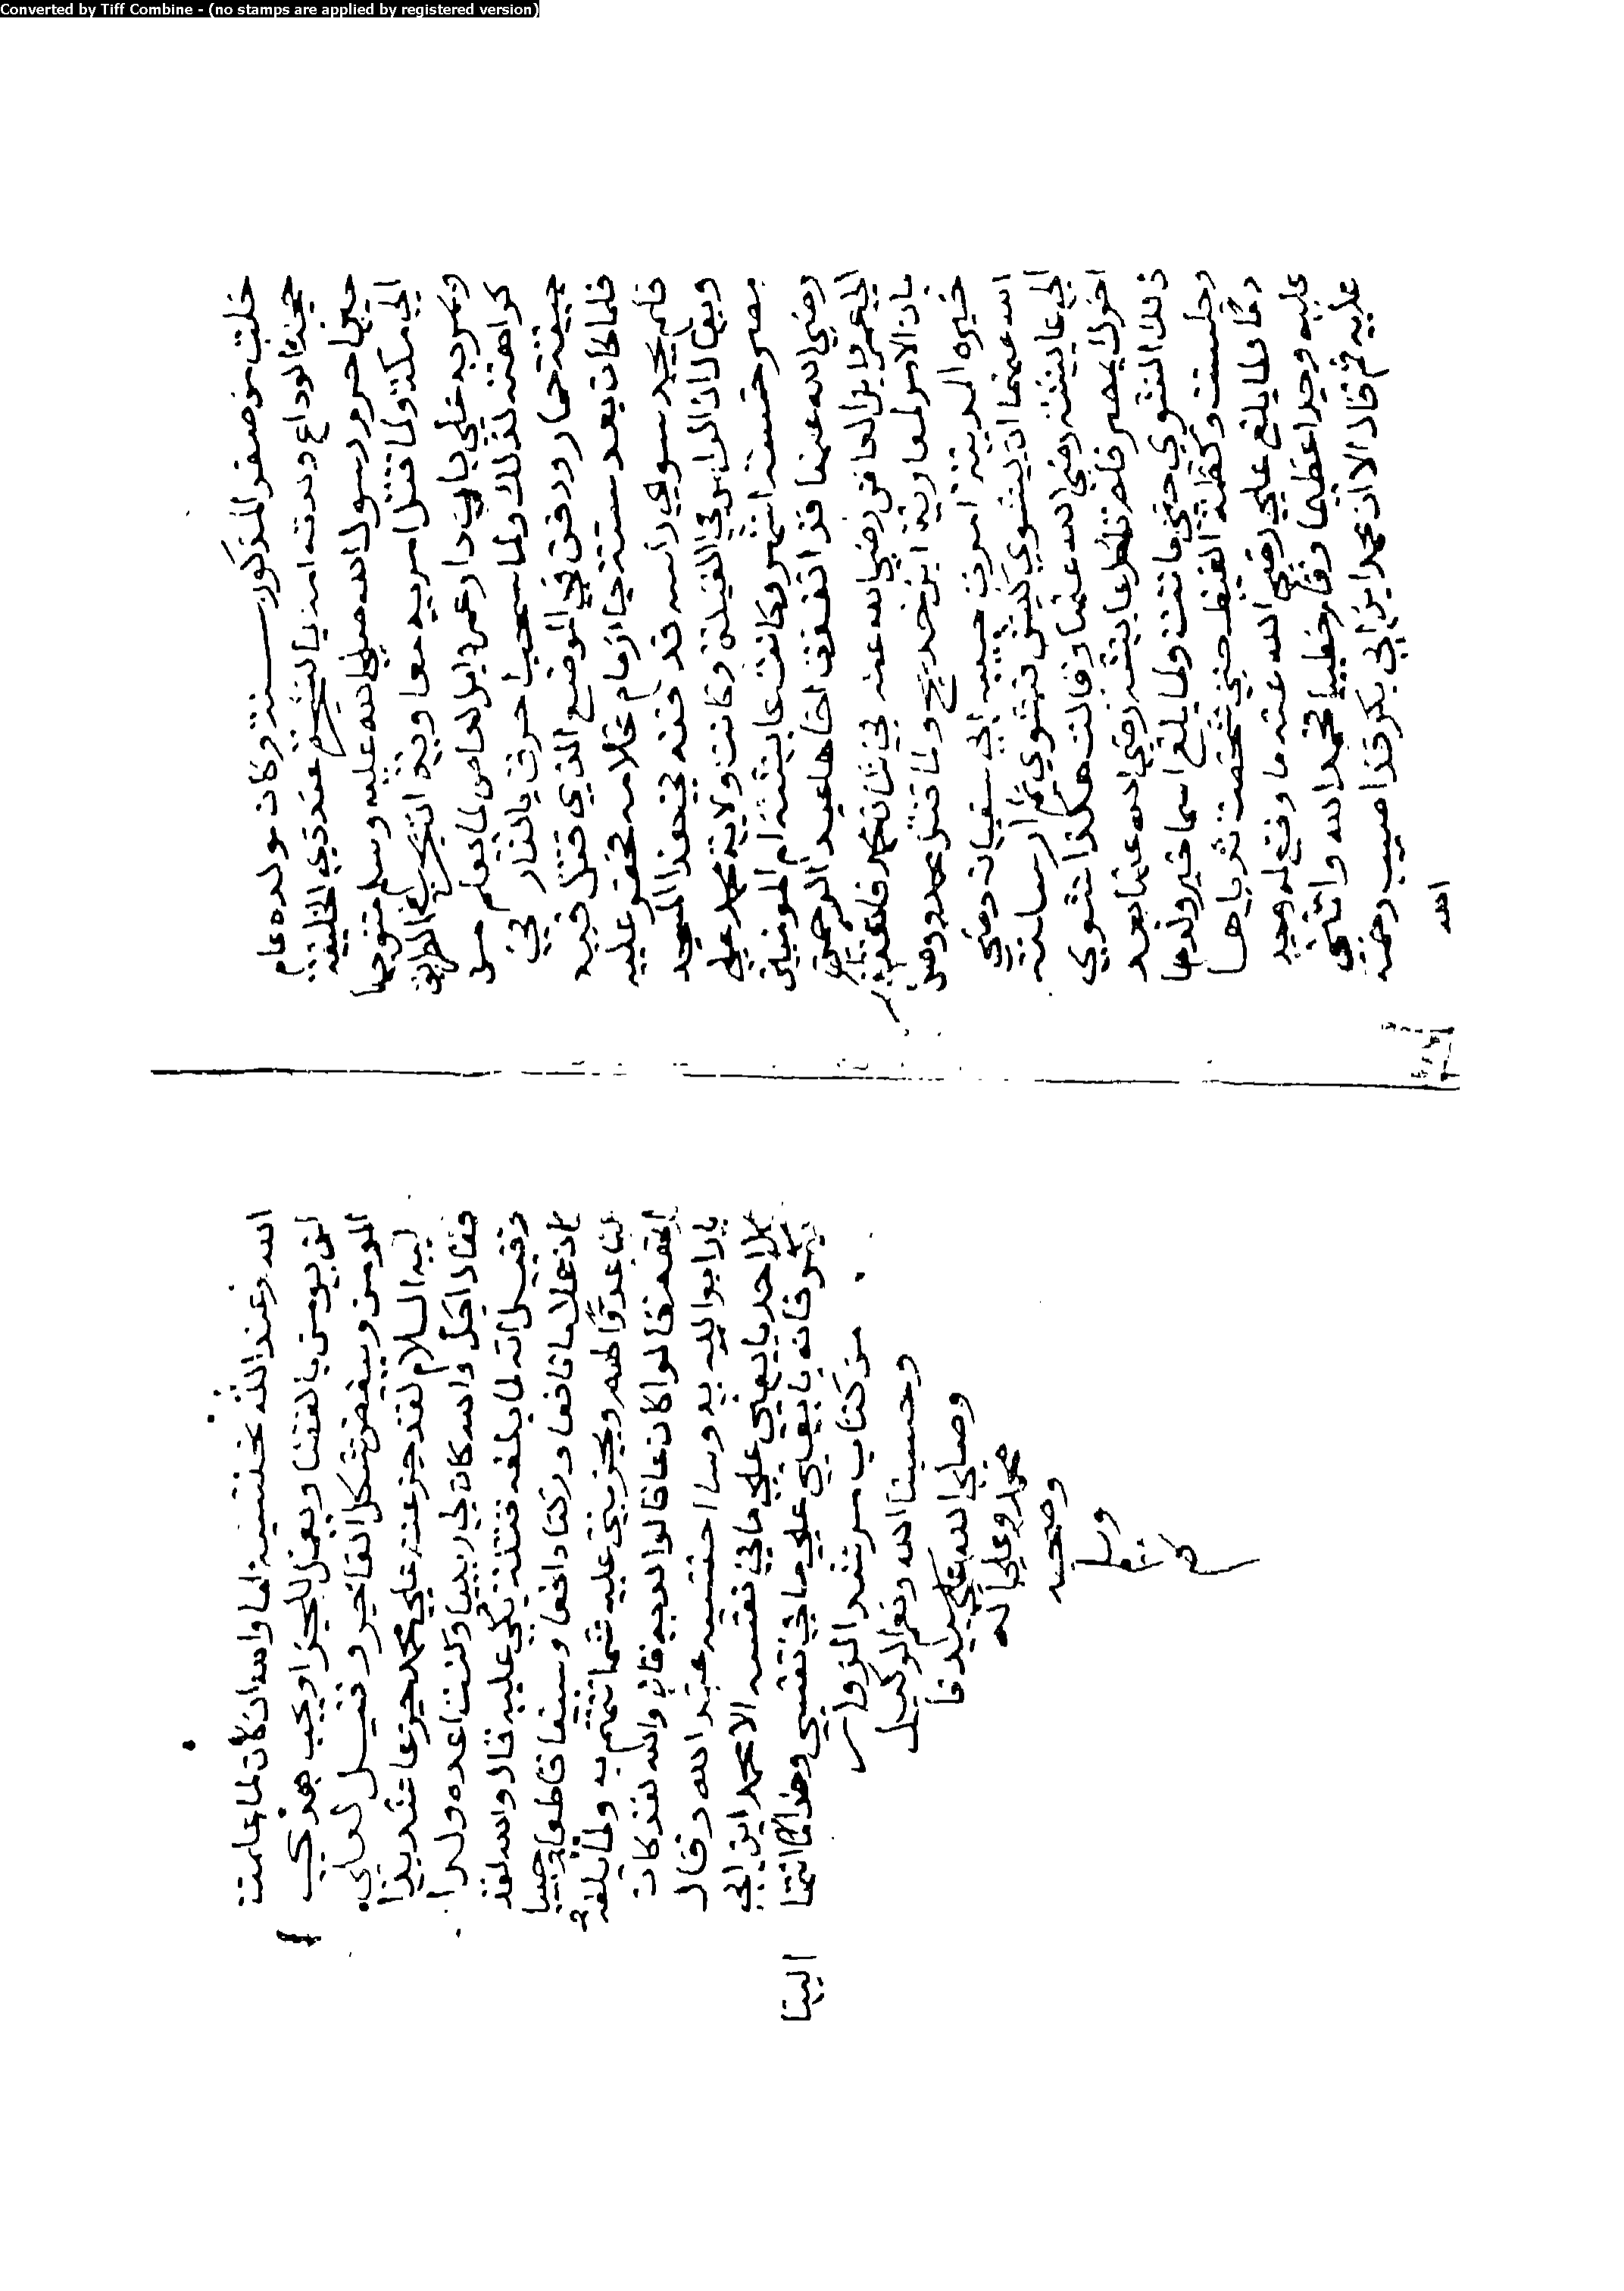 Converted by Tiff Combine - (no stamps are applied by registered version)
خلت من صفر المذكور سنة وكان مولده عام
حجة الوداع ولدته امه بالشجرة عند ذي الحليفة
حين احرم رسول الله صلى الله عليه وسلم متوجها
الى مكة ولما قتل امر به معاوية ان يجر في الطريق
ويمر به على باب دار عمرو ابن العاص لما يعلم من
كراهته لذلك ولما سحب احرق بالنار في
جيفة حمار ودفن في الموضع الذي قتل فيه
فلما كان بعد سنة جا زمام غلامه فحفر عليه
فلم يجد سوى راسه فدفنه في هذا المسجد
ويقال ان الراس في القبلة وكانت ولاية محمد على
مصر خمسة اشهر وكانت عايشة ام المومنين
رضي الله عنها قد انفذت اخاها عبد الرحمن
الى عمرو ابن العاص رضي الله عنه في شان محمد فاعتذر
بان الامر لمعاوية ابن خديج ولما قتل محمد ووصل
خبره المدينة امرت حبيبه ابي سفيان رضي
الله عنهما ان يشوى كبش فشوي ثم ارسلته
الى عايشة رضي الله عنها وقالت هكذا شوي
اخوك بمصر فلم تاكل عايشة رضي الله عنها بعد
ذلك الشوي حتى ماتت ولما بلغ اسما خبر ولدها
وجلست وكظمت الغيظ حتى شخبت ثدياها
دما ولما بلغ علي رضي الله عنه ما وقع له وجد
عليه وجدا عظيما وقام خطيبا فحمد الله واثنى
عليه ثم قال الا ان محمد ابن ابي بكر قد اصيب رحمة
الله
الله وعند الله نحتسبه اما والله ان كان لما علمت
لمن يومن بالقضا ويعمل للجزا ويحب هدي
المومن ويبغض شكل الفاجر وقيل لعلي
عليه السلام لقد جزعت على محمد جزعا شديدا
فقال اجل والله كان لي ربيبا وكنت اعده ولدا
وقيل انه لما بلغه قتله بكى عليه قال والله لقد
كان غلاما نافعا وركنا دافعا وسيفا قاطعا
لنا عدوا لهم ويحزنني عليه شماتتهم به ولما بلغ
قالوا كان عاقا لوالديه قال والله لقد كان
بارا بوالديه وما احتسبه عند الله وقال
ما احد بايعني علي ما في نفسه الا محمد ابن ابي
بكر فانه بايعني علي ما في نفسي وهذا ما انتها
الينا
من كتاب مرشد الزوار
وحسبنا الله ونعم الوكيل
وصلى الله على سيدنا
محمد وعلى آله
وصحبه
وسلم
م